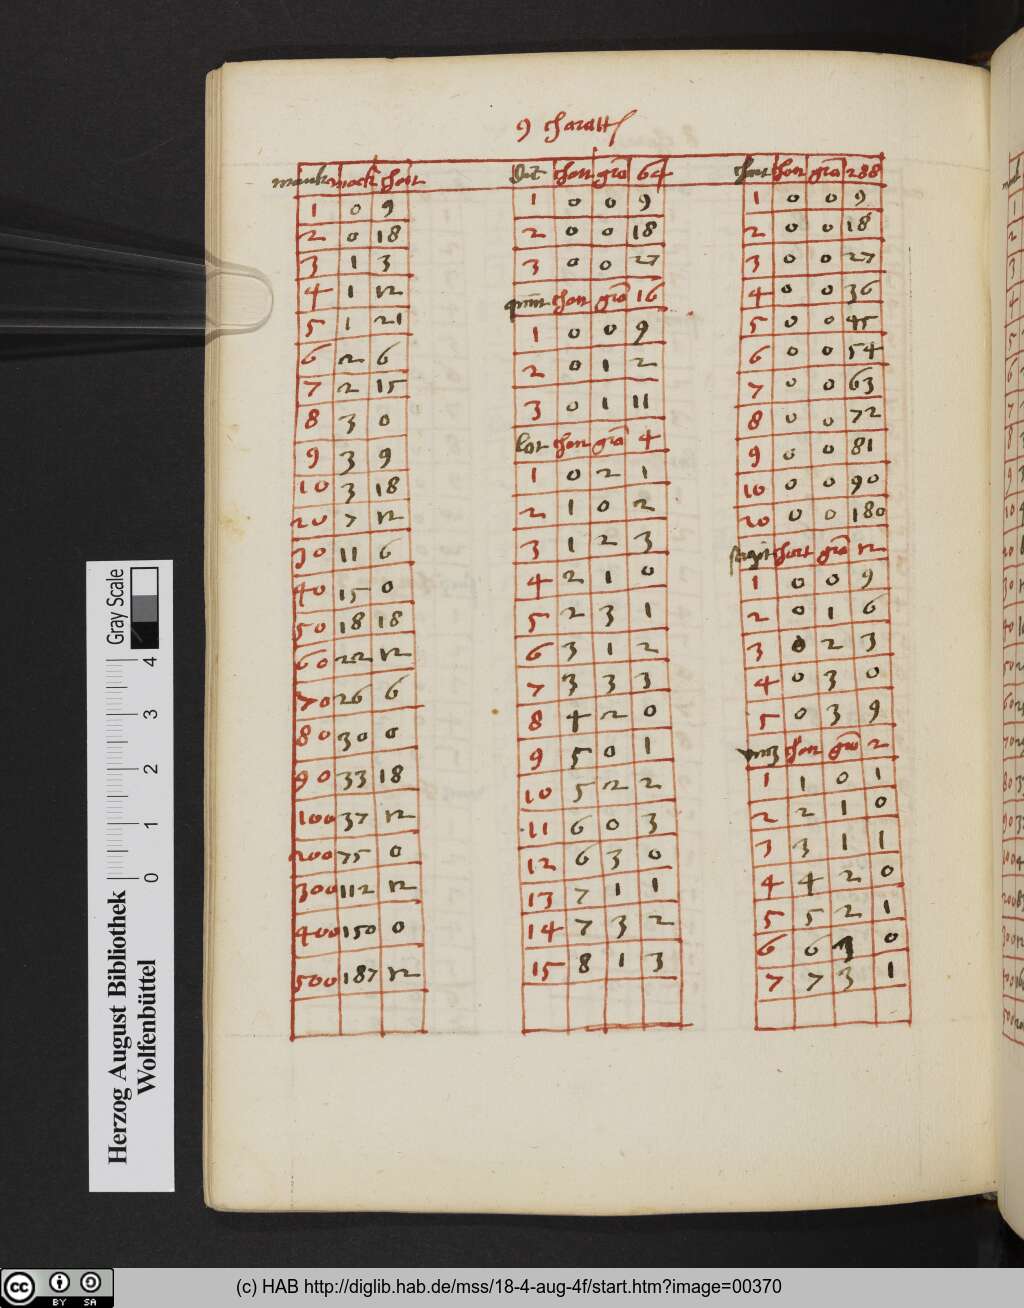 9 charatt
marck marck char
1 0 9
2 0 18
3 1 3
4 1 12
5 1 21
6 2 6
7 2 15
8 3 0
9 3 9
10 3 18
20 7 12
30 11 6
40 15 0
50 18 18
60 22 12
70 26 6
80 30 0
90 33 18
100 37 12
200 75 0
300 112 12
400 150 0
500 187 12
char gra 64
1 0 0 9
2 0 0 18
3 0 0 27
char gra 16
1 0 0 9
2 0 1 2
3 0 1 11
lot char gra 4
1 0 2 1
2 1 0 2
3 1 2 3
4 2 1 0
5 2 3 1
6 3 1 2
7 3 3 3
8 4 2 0
9 5 0 1
10 5 2 2
11 6 0 3
12 6 3 0
13 7 1 1
14 7 3 2
15 8 1 3
char gra 288
1 0 0 9
2 0 0 18
3 0 0 27
4 0 0 36
5 0 0 45
6 0 0 54
7 0 0 63
8 0 0 72
9 0 0 81
10 0 0 90
20 0 0 180
char gra 12
1 0 0 9
2 0 1 6
3 0 2 3
4 0 3 0
5 0 3 9
char gra 2
1 1 0 1
2 2 1 0
3 3 1 1
4 4 2 0
5 5 2 1
6 6 3 0
7 7 3 1
Gray Scale
0 1 2 3 4
Herzog August Bibliothek
Wolfenbüttel
cc BY SA
(c) HAB http://diglib.hab.de/mss/18-4-aug-4f/start.htm?image=00370